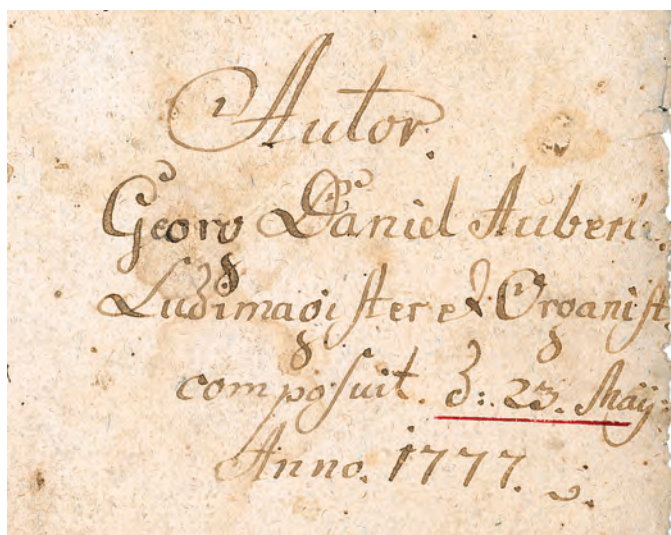 Autor.
Georg Daniel Auberi
Ludimagister et Organist
composuit. d: 23. Maÿ
Anno. 1777.